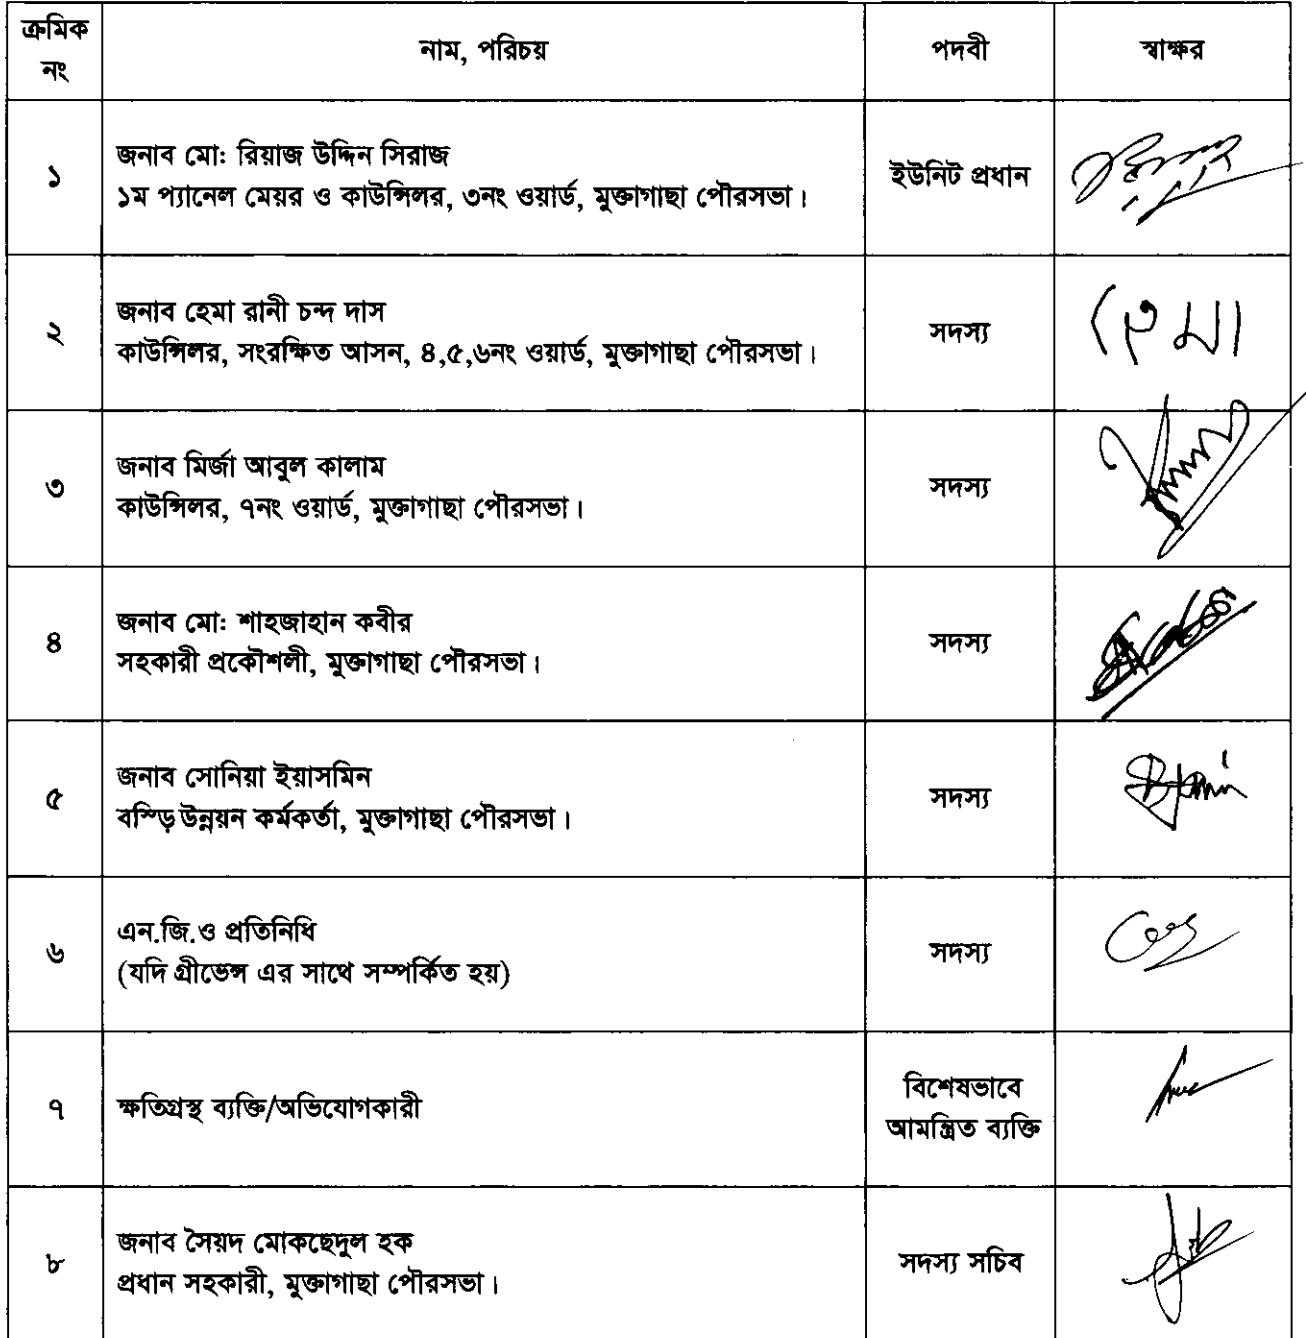 ক্রমিক নং নাম, পরিচয় পদবী স্বাক্ষর
১ জনাব মো: রিয়াজ উদ্দিন সিরাজ
১ম প্যানেল মেয়র ও কাউন্সিলর, ৩নং ওয়ার্ড, মুক্তাগাছা পৌরসভা। ইউনিট প্রধান
২ জনাব হেমা রানী চন্দ দাস
কাউন্সিলর, সংরক্ষিত আসন, ৪,৫,৬নং ওয়ার্ড, মুক্তাগাছা পৌরসভা। সদস্য হেমা
৩ জনাব মির্জা আবুল কালাম
কাউন্সিলর, ৭নং ওয়ার্ড, মুক্তাগাছা পৌরসভা। সদস্য
৪ জনাব মো: শাহজাহান কবীর
সহকারী প্রকৌশলী, মুক্তাগাছা পৌরসভা। সদস্য
৫ জনাব সোনিয়া ইয়াসমিন
বস্ড়ি উন্নয়ন কর্মকর্তা, মুক্তাগাছা পৌরসভা। সদস্য
৬ এন.জি.ও প্রতিনিধি
(যদি গ্রীভেন্স এর সাথে সম্পর্কিত হয়) সদস্য
৭ ক্ষতিগ্রস্থ ব্যক্তি/অভিযোগকারী বিশেষভাবে
আমন্ত্রিত ব্যক্তি
৮ জনাব সৈয়দ মোকছেদুল হক
প্রধান সহকারী, মুক্তাগাছা পৌরসভা। সদস্য সচিব